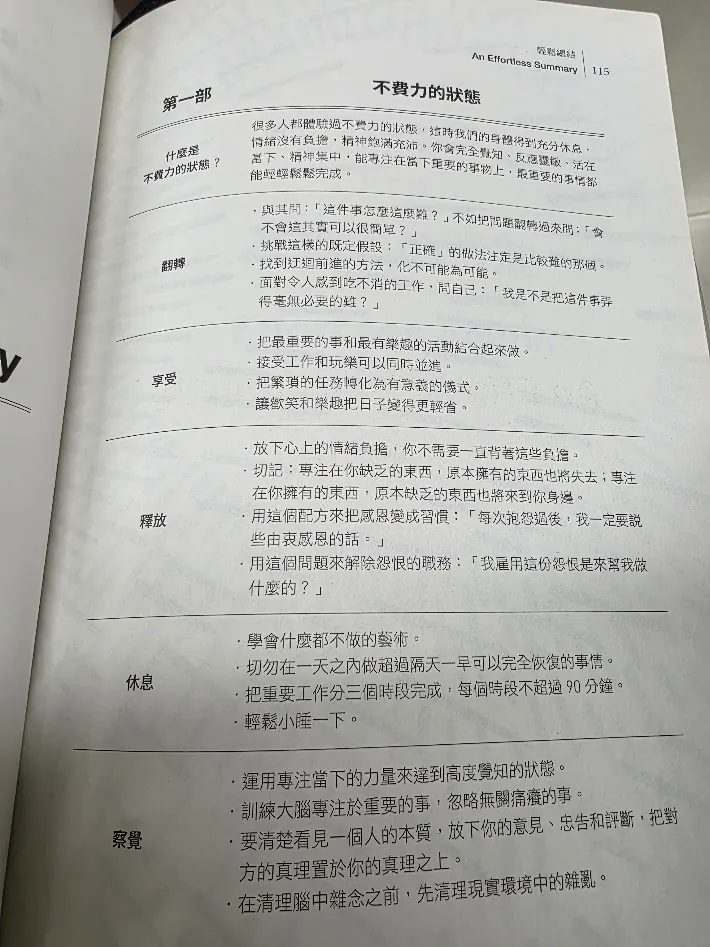 輕鬆總結
An Effortless Summary 115
第一部
不費力的狀態
什麼是
不費力的狀態？
很多人都體驗過不費力的狀態，這時我們的身體得到充分休息，
情緒沒有負擔，精神飽滿充沛。你會完全覺知、反應靈敏、活在
當下、精神集中，能專注在當下重要的事物上，最重要的事情都
能輕輕鬆鬆完成。
翻轉
· 與其問：「這件事怎麼這麼難？」不如把問題翻轉過來問：「會
不會這其實可以很簡單？」
· 挑戰這樣的既定假設：「正確」的做法注定是比較難的那個。
· 找到迂迴前進的方法，化不可能為可能。
· 面對令人感到吃不消的工作，問自己：「我是不是把這件事弄
得毫無必要的難？」
享受
· 把最重要的事和最有樂趣的活動結合起來做。
· 接受工作和玩樂可以同時並進。
· 把繁瑣的任務轉化為有意義的儀式。
· 讓歡笑和樂趣把日子變得更輕省。
釋放
· 放下心上的情緒負擔，你不需要一直背著這些負擔。
· 切記：專注在你缺乏的東西，原本擁有的東西也將失去；專注
在你擁有的東西，原本缺乏的東西也將來到你身邊。
· 用這個配方來把感恩變成習慣：「每次抱怨過後，我一定要說
些由衷感恩的話。」
· 用這個問題來解除怨恨的職務：「我雇用這份怨恨是來幫我做
什麼的？」
休息
· 學會什麼都不做的藝術。
· 切勿在一天之內做超過隔天一早可以完全恢復的事情。
· 把重要工作分三個時段完成，每個時段不超過 90 分鐘。
· 輕鬆小睡一下。
察覺
· 運用專注當下的力量來達到高度覺知的狀態。
· 訓練大腦專注於重要的事，忽略無關痛癢的事。
· 要清楚看見一個人的本質，放下你的意見、忠告和評斷，把對
方的真理置於你的真理之上。
· 在清理腦中雜念之前，先清理現實環境中的雜亂。
y